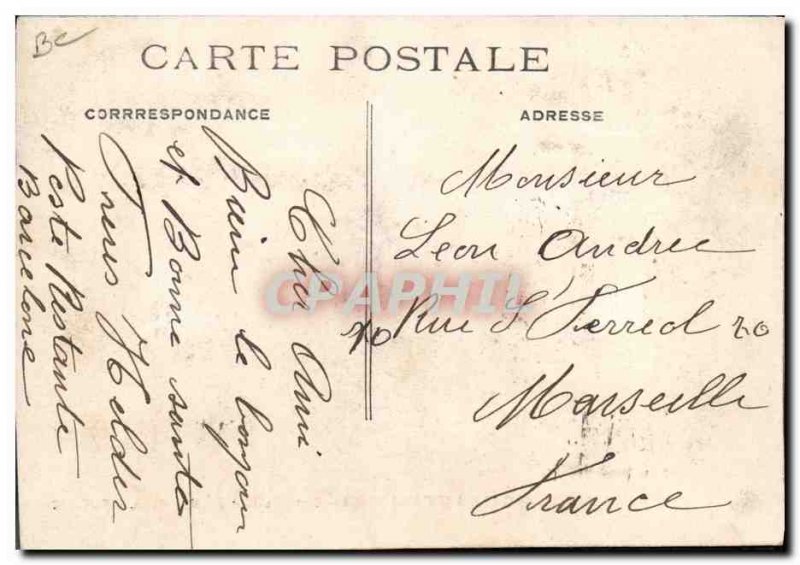 BC
CARTE POSTALE
CORRRESPONDANCE
ADRESSE
Cher Ami
Bien le bonjour
et Bonne santé
Helder
Poste Restante
Barcelone
Monsieur
Leon Andree
70 Rue St Ferreol 70
Marseille
France
CPAPHIL